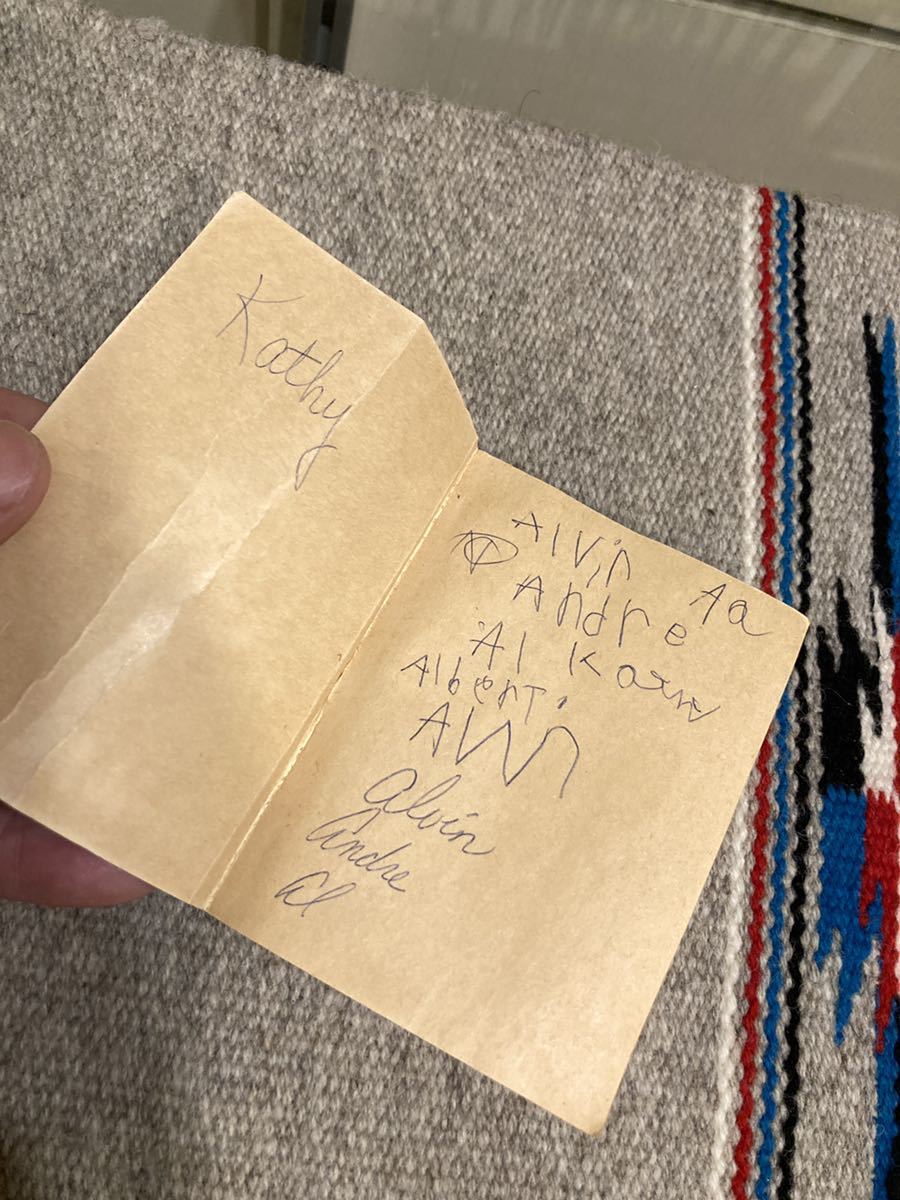 Kathy
Alvin
Aa
Andre
Al Karn
Albert
Alvin
Alvin
Andre
Al